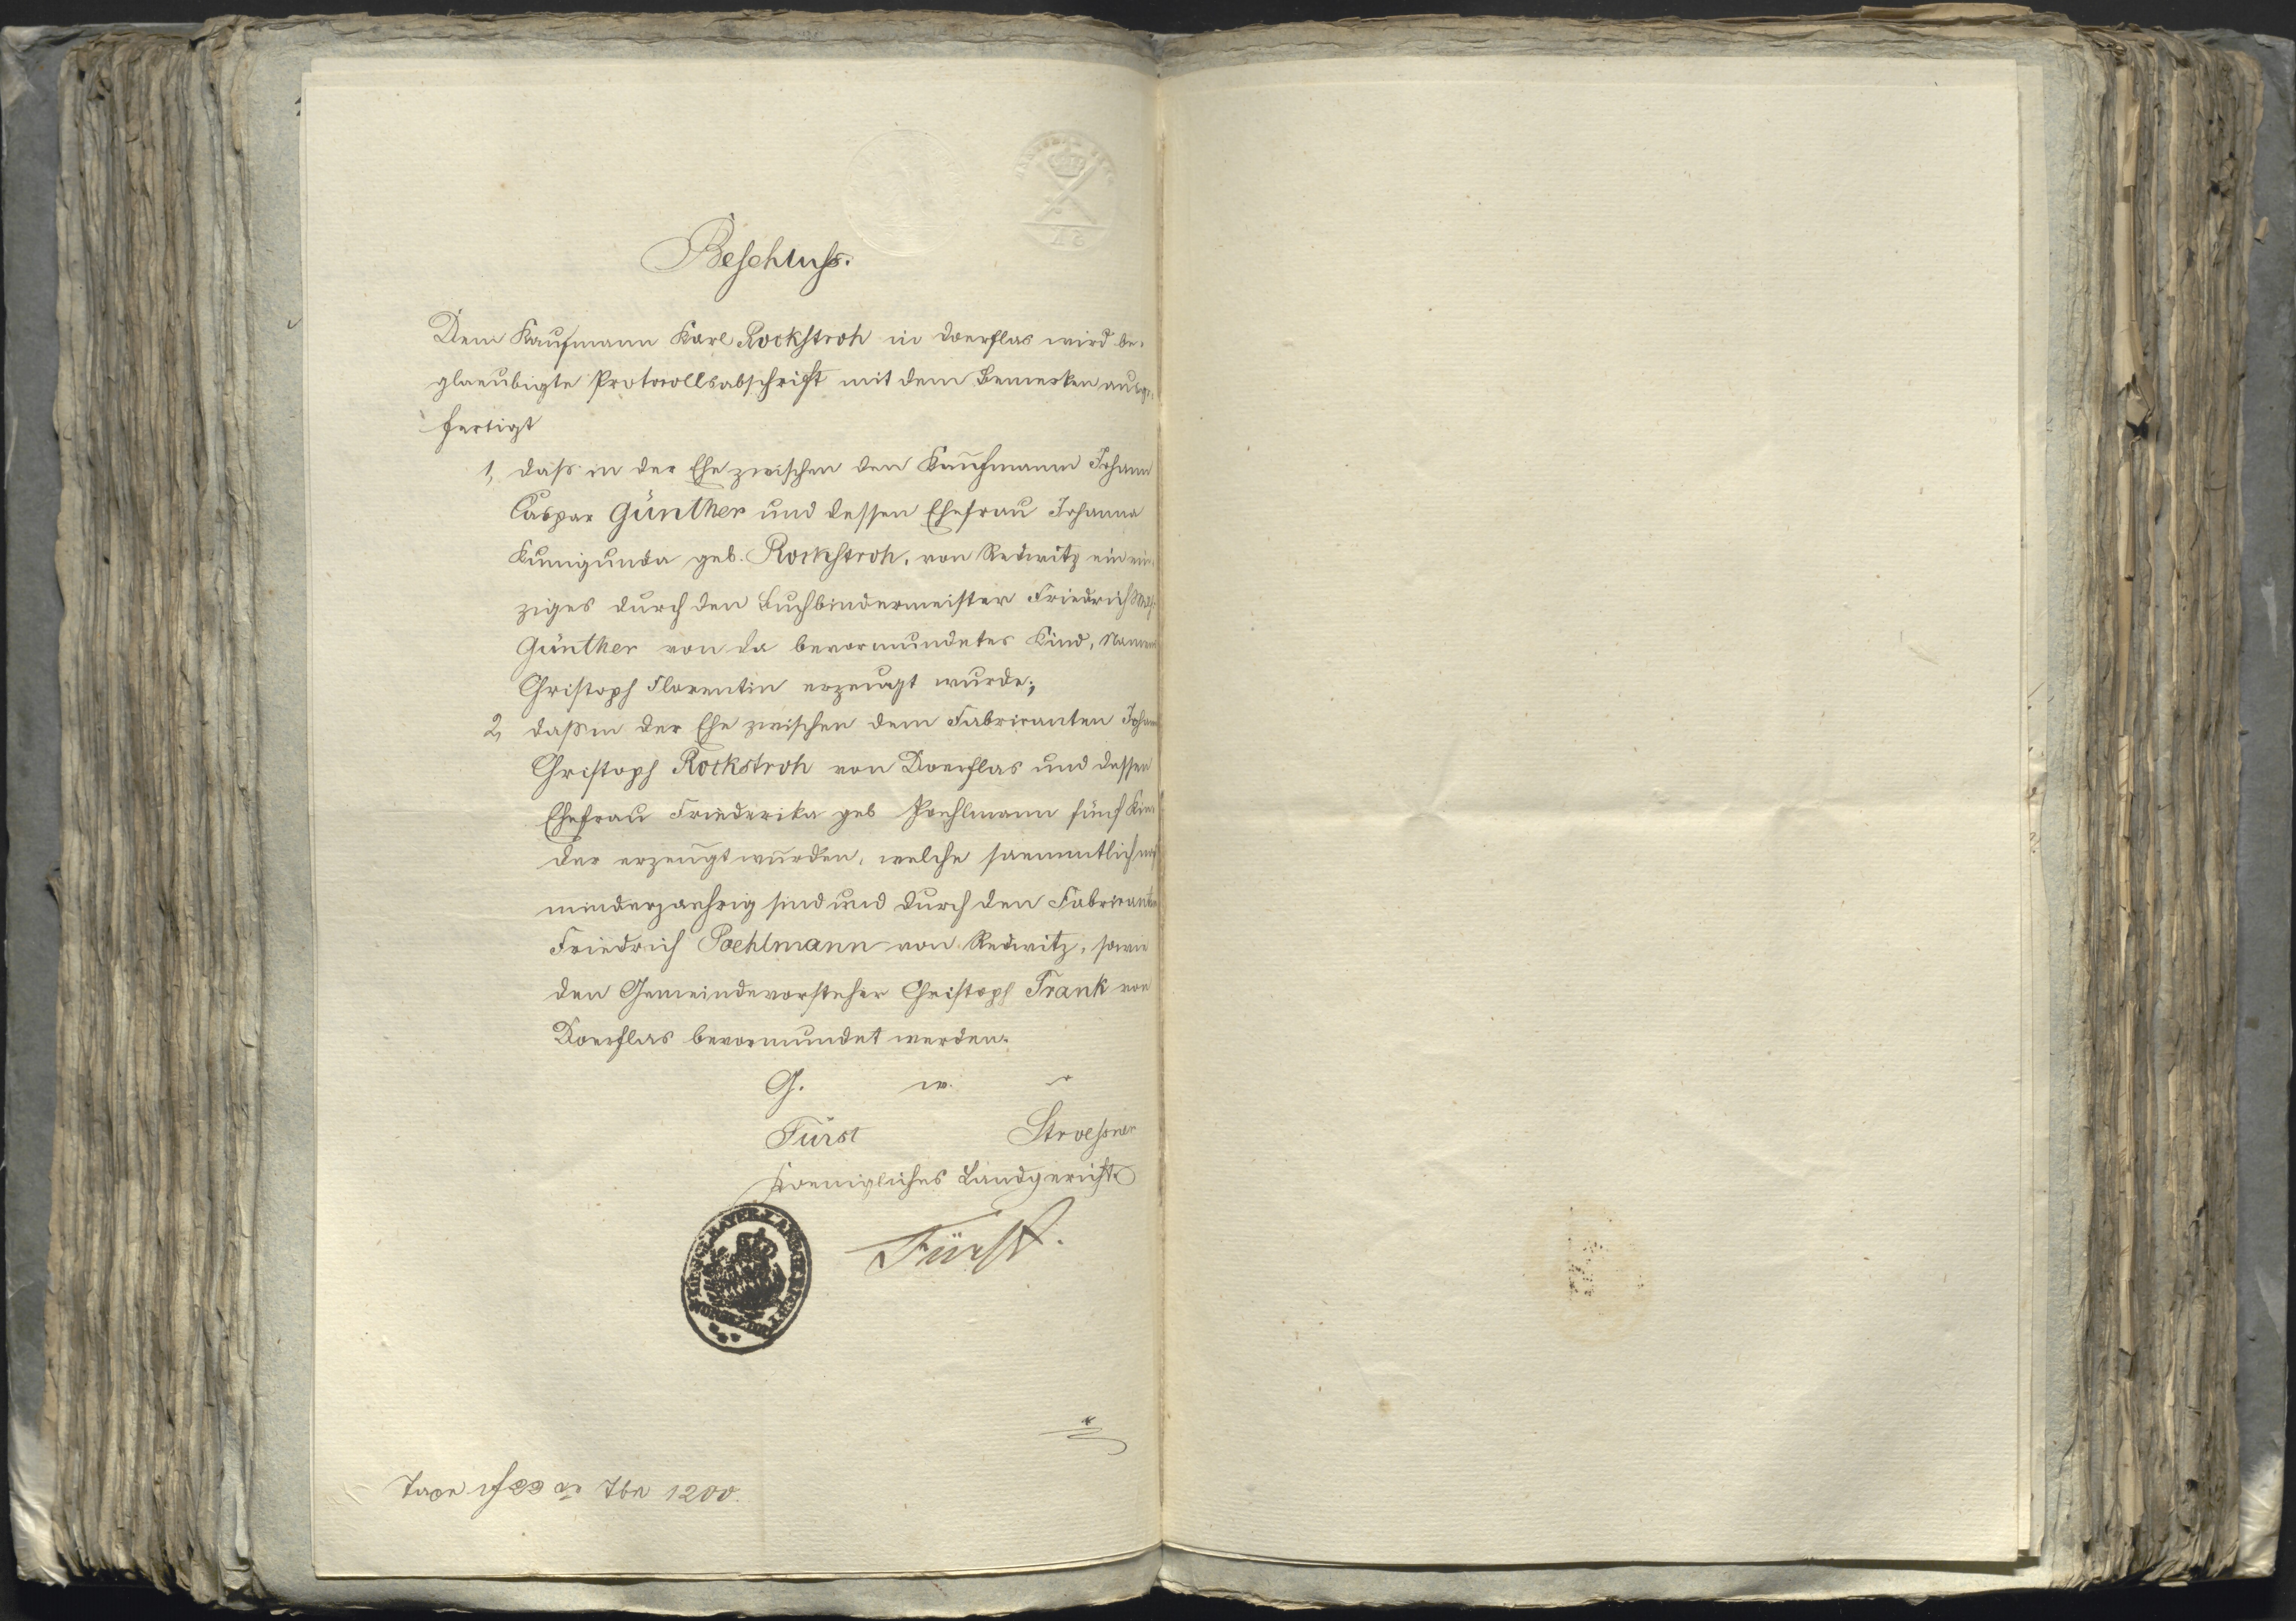 Beschluss.
Dem Kaufmann Karl Rockstroh in Doerflas wird be-
glaeubigte Protocollsabschrift mit dem Bemerken ausge-
fertigt
1, dass in der Ehe zwischen den Kaufmann Johann
Caspar Günther und dessen Ehefrau Johanna
Kunigunda geb. Rockstroh, von Redwitz ein ein-
ziges durch den Buchbindermeister Friedrich
Günther von da bevormundetes Kind, Namens
Christoph Florentin erzeugt wurde;
2, dass in der Ehe zwischen dem Fabricanten Johann
Christoph Rockstroh von Doerflas und dessen
Ehefrau Friederika geb Poehlmann fünf Kin-
der erzeugt wurden, welche saemmtlich noch
minderjaehrig sind und durch den Fabricanten
Friedrich Poehlmann von Redwitz, sowie
den Gemeindevorsteher Christoph Frank von
Doerflas bevormundet werden.
G. w. 
Fürst Stroessner
Koenigliches Landgericht
KOENIGL. BAYER. LANDGERICHT
Fürst.
Taxe 1200.